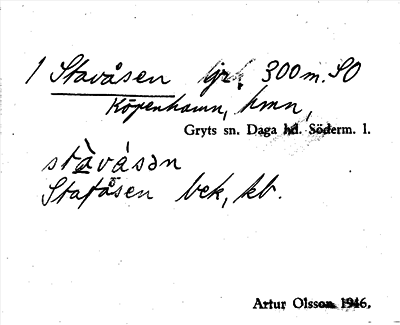 1 Stavåsen 300 m. SO
Köpenhamn, hmn,
Gryts sn. Daga hd. Söderm. l.
stàvásən
Stafåsen bek, kb.
Artur Olsson 1946.